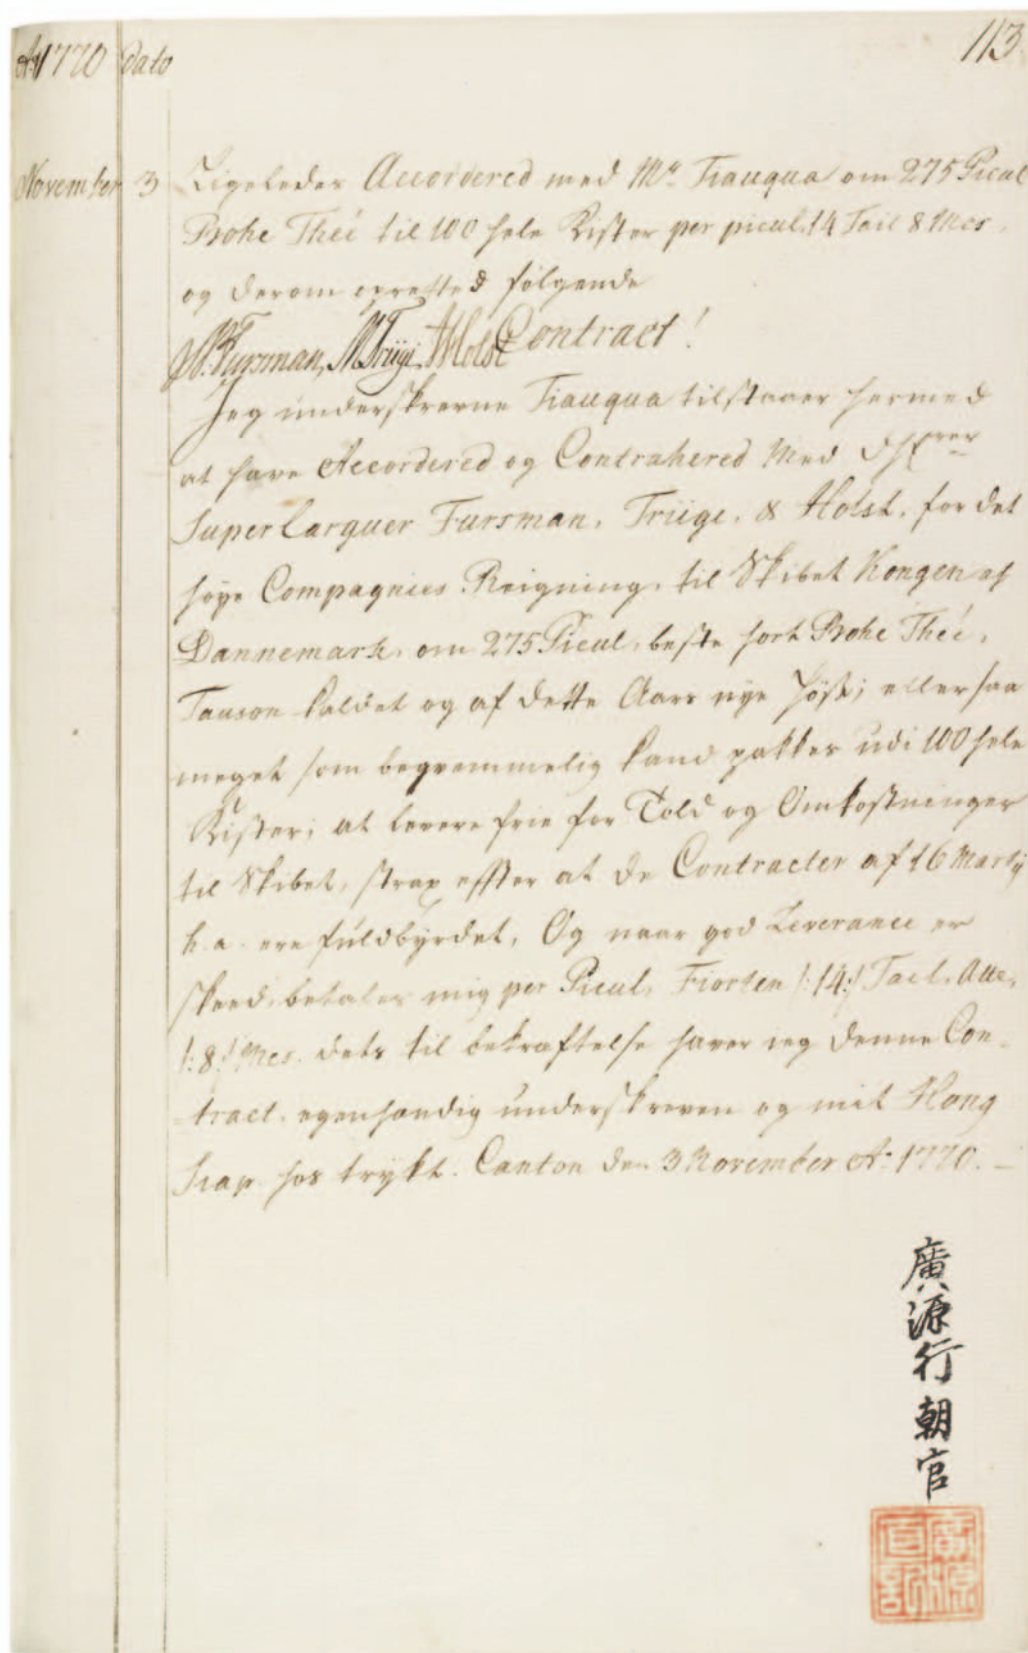 Aº 1770 dato
113
November 3 Ligeledes Accordered med Mr Tiauqua om 275 Picul
Bohe Theé til 100 hele Kister per picul 14 Tail 8 Mes
og derom opretted følgende
Fursman, Trüge, Holst Contract!
Jeg underskrevne Tiauqua tilstaaer hermed
at have Accordered og Contrahered Med
Super Carguer Fursman, Trüge, & Holst, for det
høye Compagnies Reigning, til Skibet Kongen af
Dannemark, om 275 Picul, beste sort Bohe Theé,
Tauson kaldet og af dette Aars nye Høst; eller saa
meget som beqvemmelig kand pakkes udi 100 hele
Kister; at levere frie for Told og Omkostninger
til Skibet, strax effter at de Contracter af 16 Martij
h. a. ere fuldbyrdet, Og naar god Leverance er
skeed, betales mig per Picul, Fiorten /:14:/ Tael, Otte,
/:8:/ Mes. dets til bekræftelse haver ieg denne Con-
tract, egenhændig underskreven og mit Hong
Siap hos trykt. Canton den 3 November Aº 1770. —
廣源行朝官